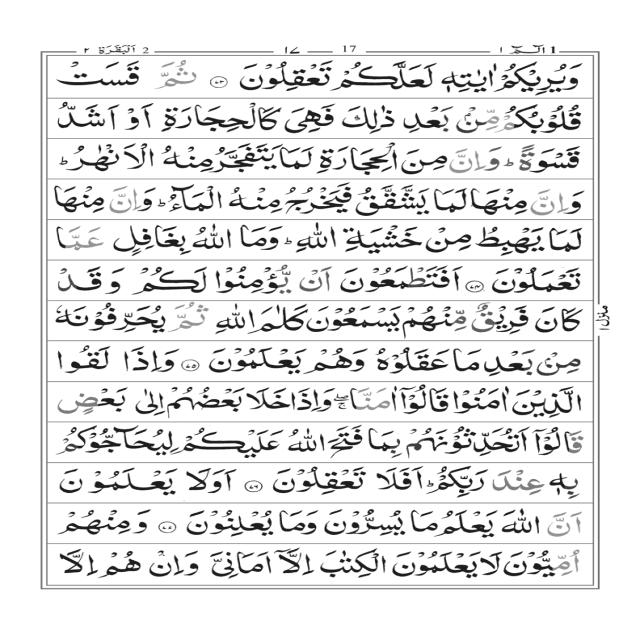 الٓمّٓ ١ 1 ١٧ 17 2 اَلْبَقَرَة ٢
وَيُرِيْكُمْ اٰيٰتِهٖ لَعَلَّكُمْ تَعْقِلُوْنَ ﴿٧٣﴾ ثُمَّ قَسَتْ
قُلُوْبُكُمْ مِّنْۢ بَعْدِ ذٰلِكَ فَهِيَ كَالْحِجَارَةِ اَوْ اَشَدُّ
قَسْوَةً ؕ وَاِنَّ مِنَ الْحِجَارَةِ لَمَا يَتَفَجَّرُ مِنْهُ الْاَنْهٰرُ ؕ
وَاِنَّ مِنْهَا لَمَا يَشَّقَّقُ فَيَخْرُجُ مِنْهُ الْمَآءُ ؕ وَاِنَّ مِنْهَا
لَمَا يَهْبِطُ مِنْ خَشْيَةِ اللّٰهِ ؕ وَمَا اللّٰهُ بِغَافِلٍ عَمَّا
تَعْمَلُوْنَ ﴿٧٤﴾ اَفَتَطْمَعُوْنَ اَنْ يُّؤْمِنُوْا لَكُمْ وَقَدْ
كَانَ فَرِيْقٌ مِّنْهُمْ يَسْمَعُوْنَ كَلٰمَ اللّٰهِ ثُمَّ يُحَرِّفُوْنَهٗ
مِنْۢ بَعْدِ مَا عَقَلُوْهُ وَهُمْ يَعْلَمُوْنَ ﴿٧٥﴾ وَاِذَا لَقُوا
الَّذِيْنَ اٰمَنُوْا قَالُوْٓا اٰمَنَّا ۖۚ وَاِذَا خَلَا بَعْضُهُمْ اِلٰى بَعْضٍ
قَالُوْٓا اَتُحَدِّثُوْنَهُمْ بِمَا فَتَحَ اللّٰهُ عَلَيْكُمْ لِيُحَآجُّوْكُمْ
بِهٖ عِنْدَ رَبِّكُمْ ؕ اَفَلَا تَعْقِلُوْنَ ﴿٧٦﴾ اَوَلَا يَعْلَمُوْنَ
اَنَّ اللّٰهَ يَعْلَمُ مَا يُسِرُّوْنَ وَمَا يُعْلِنُوْنَ ﴿٧٧﴾ وَمِنْهُمْ
اُمِّيُّوْنَ لَا يَعْلَمُوْنَ الْكِتٰبَ اِلَّآ اَمَانِيَّ وَاِنْ هُمْ اِلَّا
منزل ١